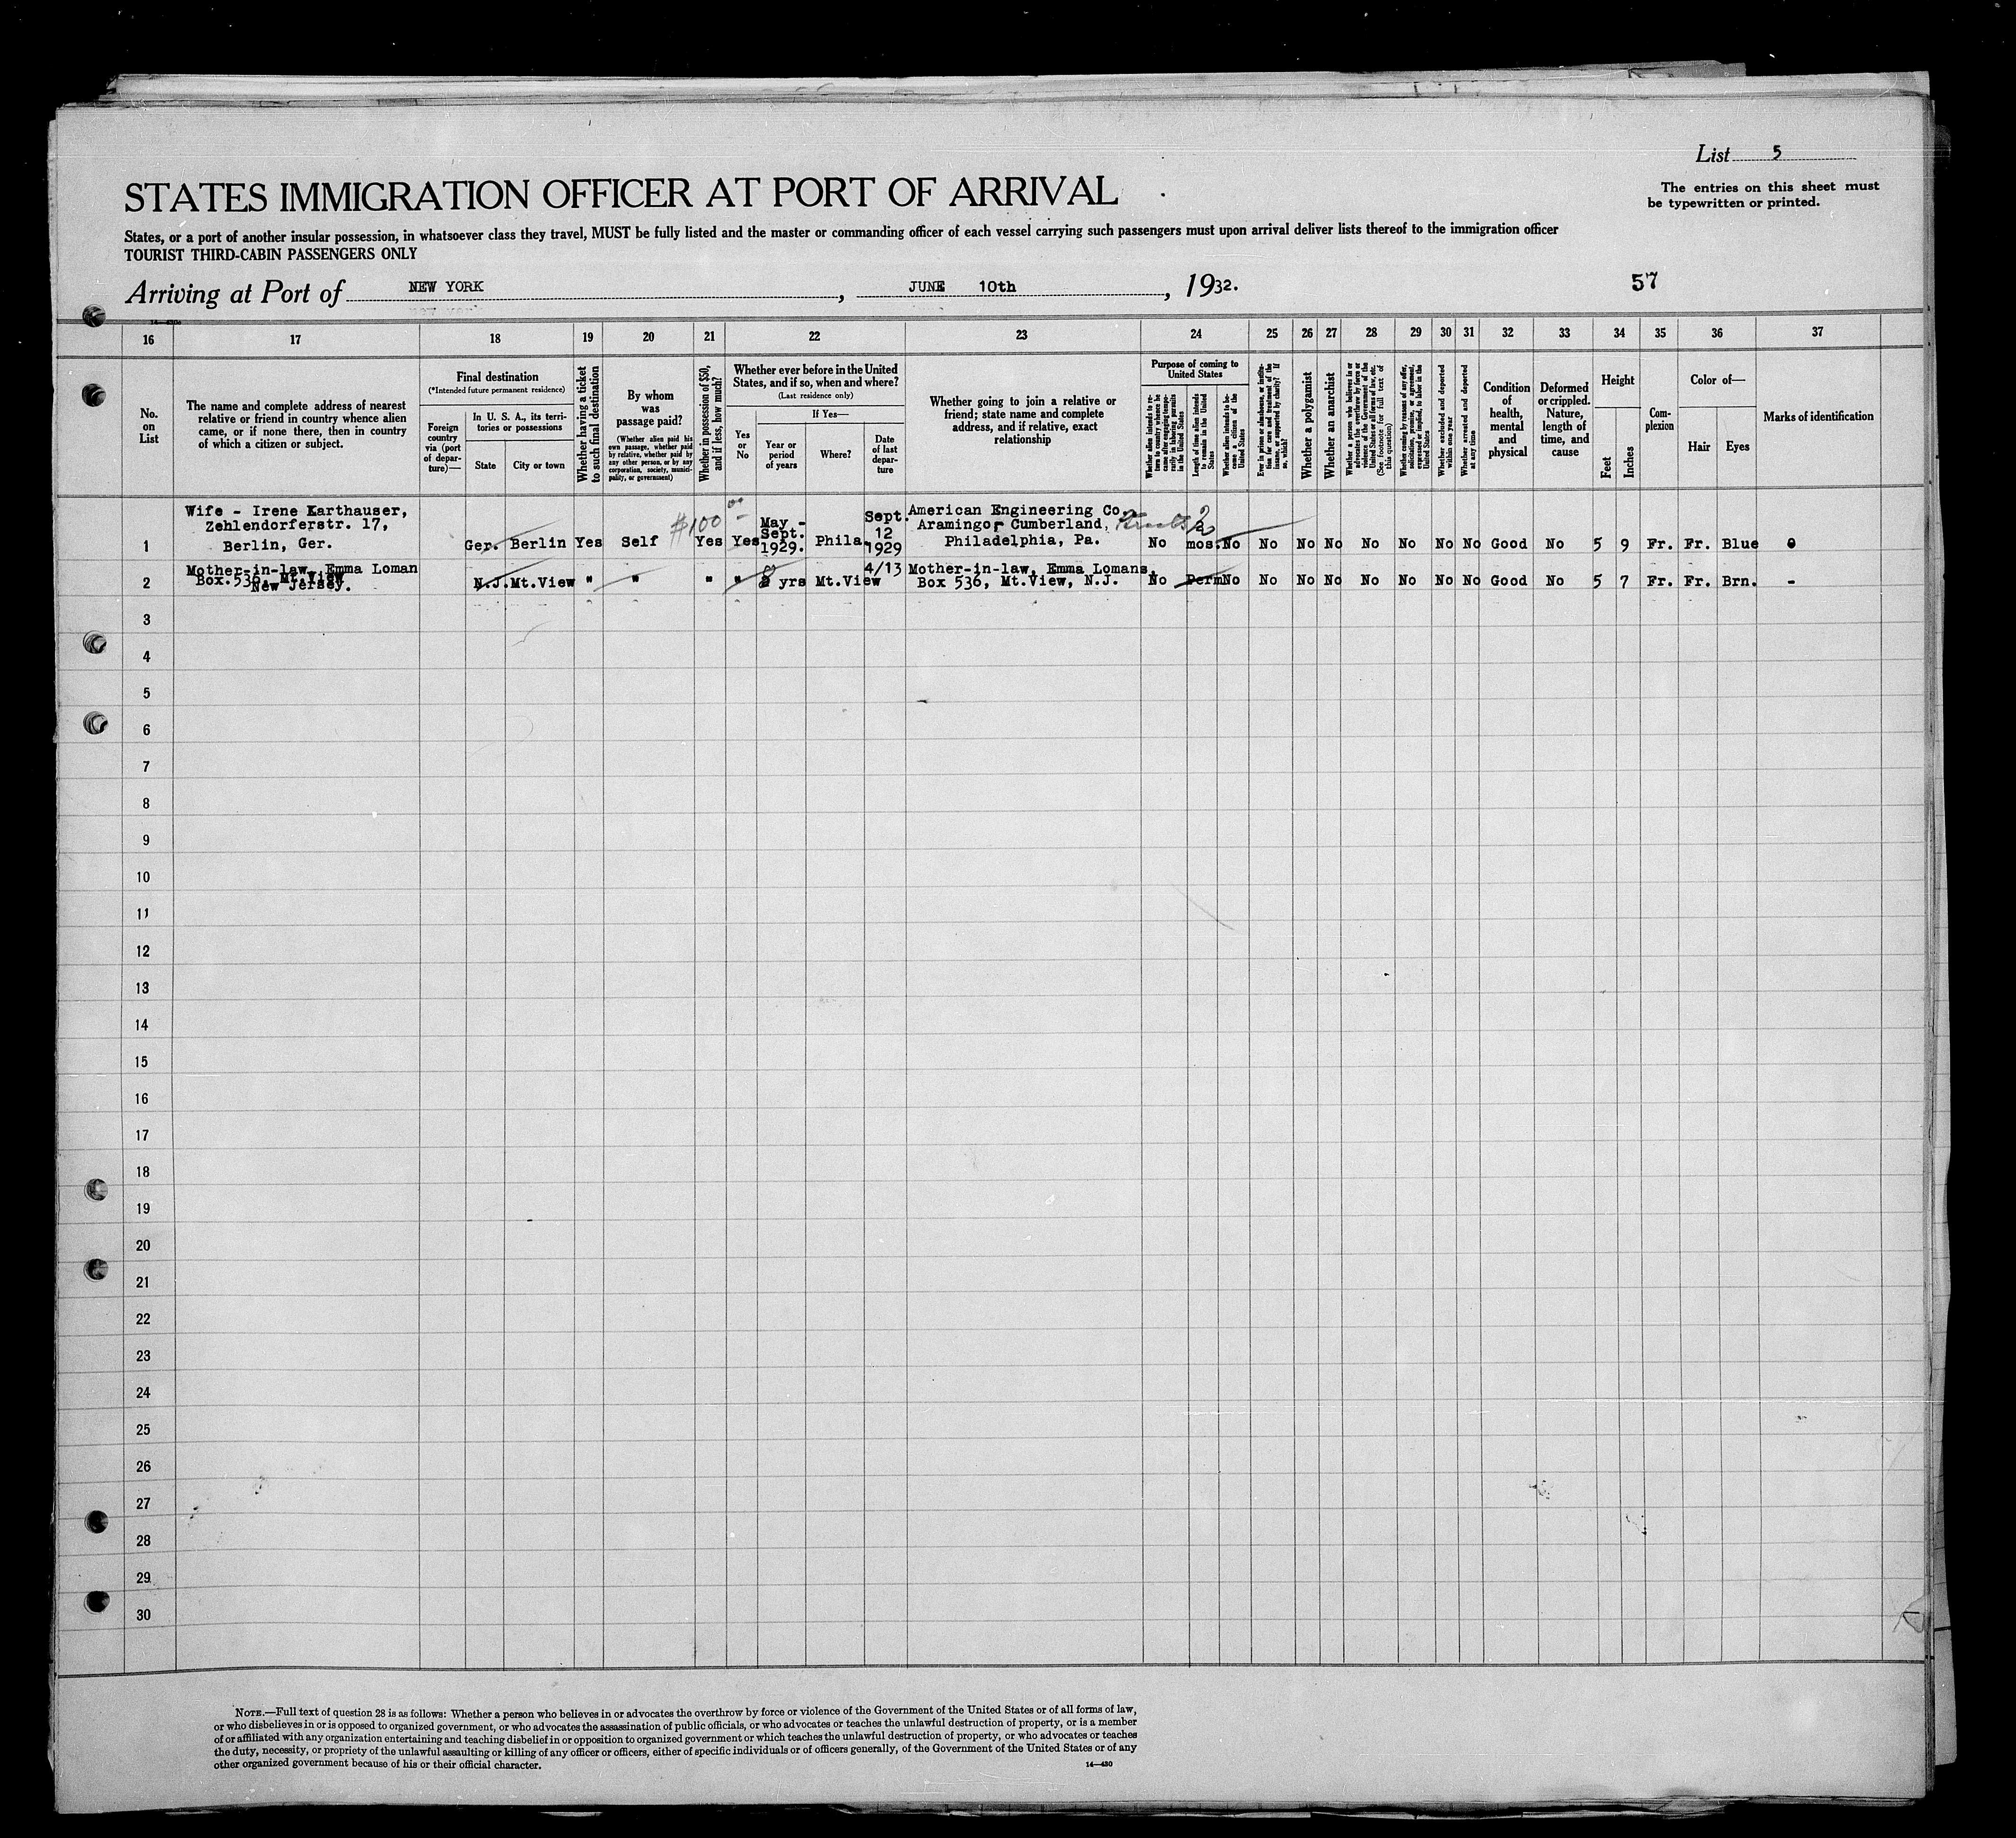 List 5
The entries on this sheet must
be typewritten or printed.
STATES IMMIGRATION OFFICER AT PORT OF ARRIVAL
States, or a port of another insular possession, in whatsoever class they travel, MUST be fully listed and the master or commanding officer of each vessel carrying such passengers must upon arrival deliver lists thereof to the immigration officer
TOURIST THIRD-CABIN PASSENGERS ONLY
Arriving at Port of NEW YORK, JUNE 10th, 1932.
57
16 17 18 19 20 21 22 23 24 25 26 27 28 29 30 31 32 33 34 35 36 37
No.
on
List
The name and complete address of nearest
relative or friend in country whence alien
came, or if none there, then in country
of which a citizen or subject.
Final destination
(*Intended future permanent residence)
Foreign
country
via (port
of depar-
ture)—
In U. S. A., its terri-
tories or possessions
State
City or town
Whether having a ticket
to such final destination
By whom
was
passage paid?
(Whether alien paid his
own passage, whether paid
by relative, whether paid by
any other person, or by any
corporation, society, munici-
pality, or government)
Whether in possession of $50,
and if less, how much?
Whether ever before in the United
States, and if so, when and where?
(Last residence only)
Yes
or
No
If Yes—
Year or
period
of years
Where?
Date
of last
depar-
ture
Whether going to join a relative or
friend; state name and complete
address, and if relative, exact
relationship
Purpose of coming to
United States
Whether alien intends to re-
turn to country whence he
came after engaging tempo-
rarily in laboring pursuits
in the United States
Length of time alien intends
to remain in the United
States
Whether alien intends to be-
come a citizen of the
United States
Ever in prison or almshouse, or institu-
tion for care and treatment of the
insane, or supported by charity? If
so, which?
Whether a polygamist
Whether an anarchist
Whether a person who believes in or
advocates the overthrow by force or
violence of the Government of the
United States or all forms of law, etc.
(See footnote for full text of
this question)
Whether coming by reasons of any offer,
solicitation, promise, or agreement,
expressed or implied, to labor in the
United States
Whether excluded and deported
within one year
Whether arrested and deported
at any time
Condition
of
health,
mental
and
physical
Deformed
or crippled.
Nature,
length of
time, and
cause
Height
Feet
Inches
Com-
plexion
Color of—
Hair
Eyes
Marks of identification
Wife - Irene Karthauser,
Zehlendorferstr. 17,
1 Berlin, Ger. Ger. Berlin Yes Self $100 Yes Yes May - Sept. 1929. Phila. Sept. 12 1929
American Engineering Co.
Aramingo Cumberland, Streets
Philadelphia, Pa. No 2 mos. No No No No No No No No Good No 5 9 Fr. Fr. Blue
Mother-in-law, Emma Loman
Box.536, Mt.View
2 New Jersey. N.J. Mt.View " " " " yrs Mt.View 4/13
Mother-in-law, Emma Lomans,
Box 536, Mt.View, N.J. No Perm No No No No No No No No Good No 5 7 Fr. Fr. Brn. -
3
4
5
6
7
8
9
10
11
12
13
14
15
16
17
18
19
20
21
22
23
24
25
26
27
28
29
30
NOTE.—Full text of question 28 is as follows: Whether a person who believes in or advocates the overthrow by force or violence of the Government of the United States or of all forms of law,
or who disbelieves in or is opposed to organized government, or who advocates the assassination of public officials, or who advocates or teaches the unlawful destruction of property, or is a member
of or affiliated with any organization entertaining and teaching disbelief in or opposition to organized government or which teaches the unlawful destruction of property, or who advocates or teaches
the duty, necessity, or propriety of the unlawful assaulting or killing of any officer or officers, either of specific individuals or of officers generally, of the Government of the United States or of any
other organized government because of his or their official character.
14—430